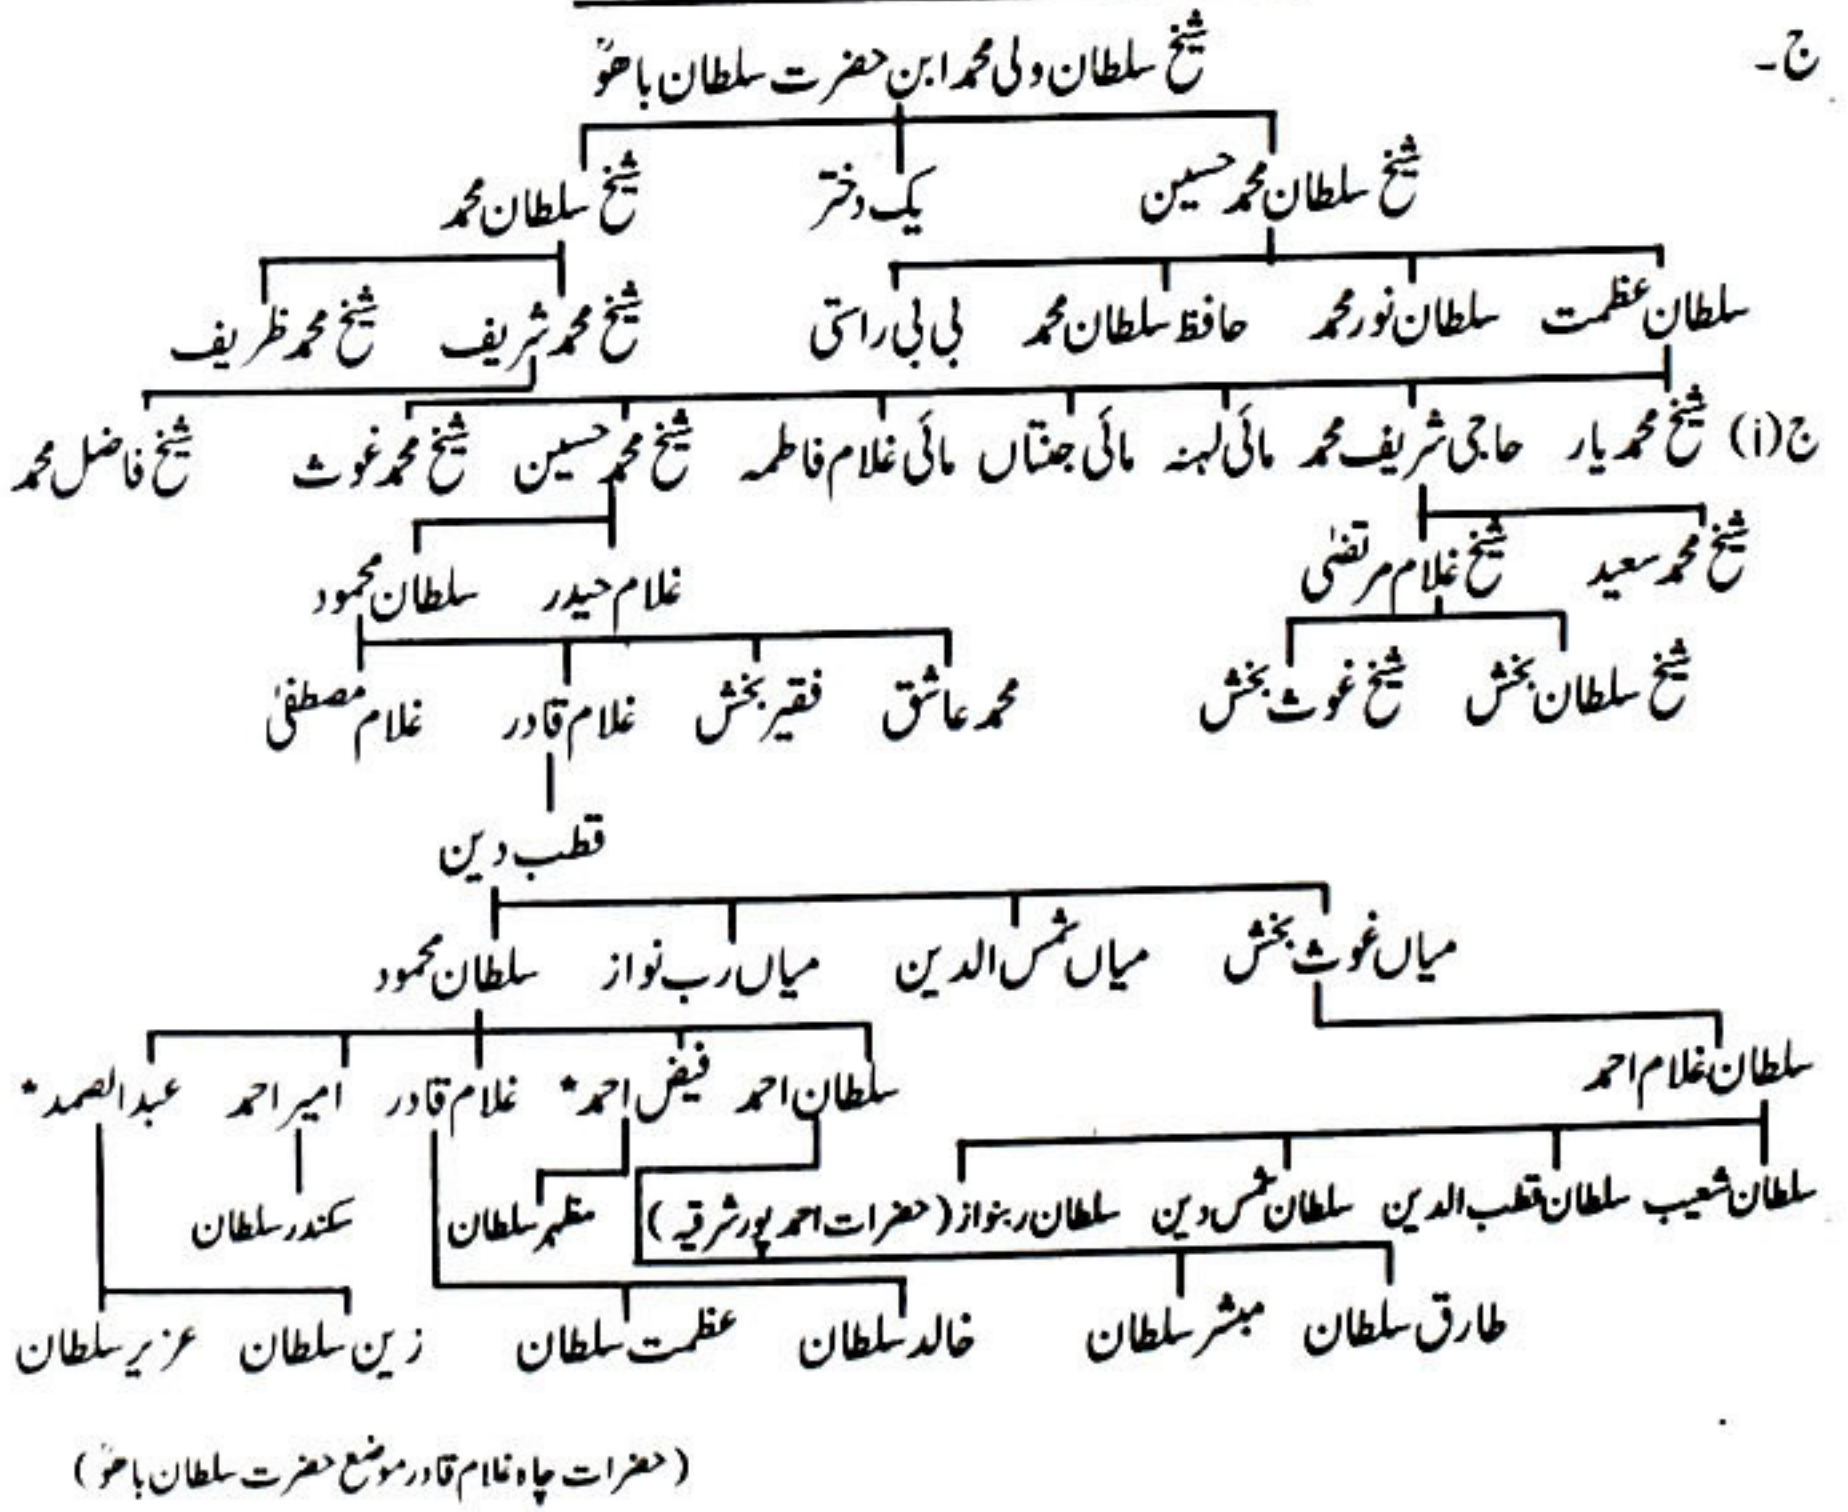 ج۔
شیخ سلطان ولی محمد ابن حضرت سلطان باھوؒ
شیخ سلطان محمد حسین یک دختر شیخ سلطان محمد
سلطان عظمت سلطان نور محمد حافظ سلطان محمد بی بی راستی شیخ محمد شریف شیخ محمد ظریف
ج(i) شیخ محمد یار حاجی شریف محمد مائی لہنہ مائی جنتاں مائی غلام فاطمہ شیخ محمد حسین شیخ محمد غوث شیخ فاضل محمد
شیخ محمد سعید شیخ غلام مرتضٰی غلام حیدر سلطان محمود
شیخ سلطان بخش شیخ غوث بخش محمد عاشق فقیر بخش غلام قادر غلام مصطفٰی
قطب دین
میاں غوث بخش میاں شمس الدین میاں رب نواز سلطان محمود
سلطان غلام احمد سلطان احمد فیض احمد* غلام قادر امیر احمد عبدالصمد*
سلطان شعیب سلطان قطب الدین سلطان شمس دین سلطان ربنواز (حضرات احمد پور شرقیہ) مظہر سلطان سکندر سلطان
طارق سلطان مبشر سلطان خالد سلطان عظمت سلطان زین سلطان عزیر سلطان
(حضرات چاہ غلام قادر موضع حضرت سلطان باھوؒ)